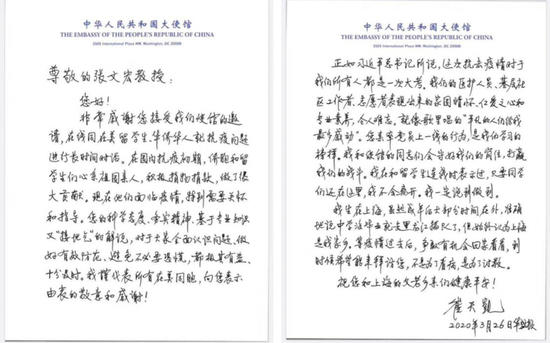 中华人民共和国大使馆
THE EMBASSY OF THE PEOPLE'S REPUBLIC OF CHINA
3505 International Place NW, Washington, DC 20008
尊敬的张文宏教授：
您好！
非常感谢您接受我们使馆的邀
请，在线同在美留学生、华侨华人就抗疫问题
进行长时间对话。在国内抗疫初期，侨胞和留
学生们心系祖国亲人，积极捐物捐款，做了很
大贡献。现在他们面临疫情，特别需要关怀
和指导。您的科学态度、求实精神、基于专业知识
又"接地气"的解说，对于大家全面认识问题、做
好有效防范、避免不必要恐慌，都极其有益、
十分及时。我谨代表所有在美同胞，向您表示
由衷的敬意和感谢！
中华人民共和国大使馆
THE EMBASSY OF THE PEOPLE'S REPUBLIC OF CHINA
3505 International Place NW, Washington, DC 20008
正如习近平总书记所说，这次抗击疫情对于
我们所有人都是一次大考。我们的医护人员、基层社
区工作者、志愿者表现出来的家国情怀、仁爱之心和
专业素养，令人难忘，就像歌里唱的"平凡的人们给我
最多感动"。您率党员上一线的行为，是我们学习的
榜样。我和使馆的同志们会守好我们的岗位，打赢
我们的战斗。我在和留学生通话时表示过，只要同学
们还在这里，我不会离开。我一定说到做到。
我生在上海，虽然成年后大部分时间在外，准确
地说中学没毕业就去黑龙江插队了，但始终认为上海
是我家乡。等疫情过去后，争取有机会回家看看，到
时候希望能来拜访您，不是为了看病，是为了讨教。
祝您和上海的父老乡亲们健康平安！
崔天凯
2020年3月26日 华盛顿